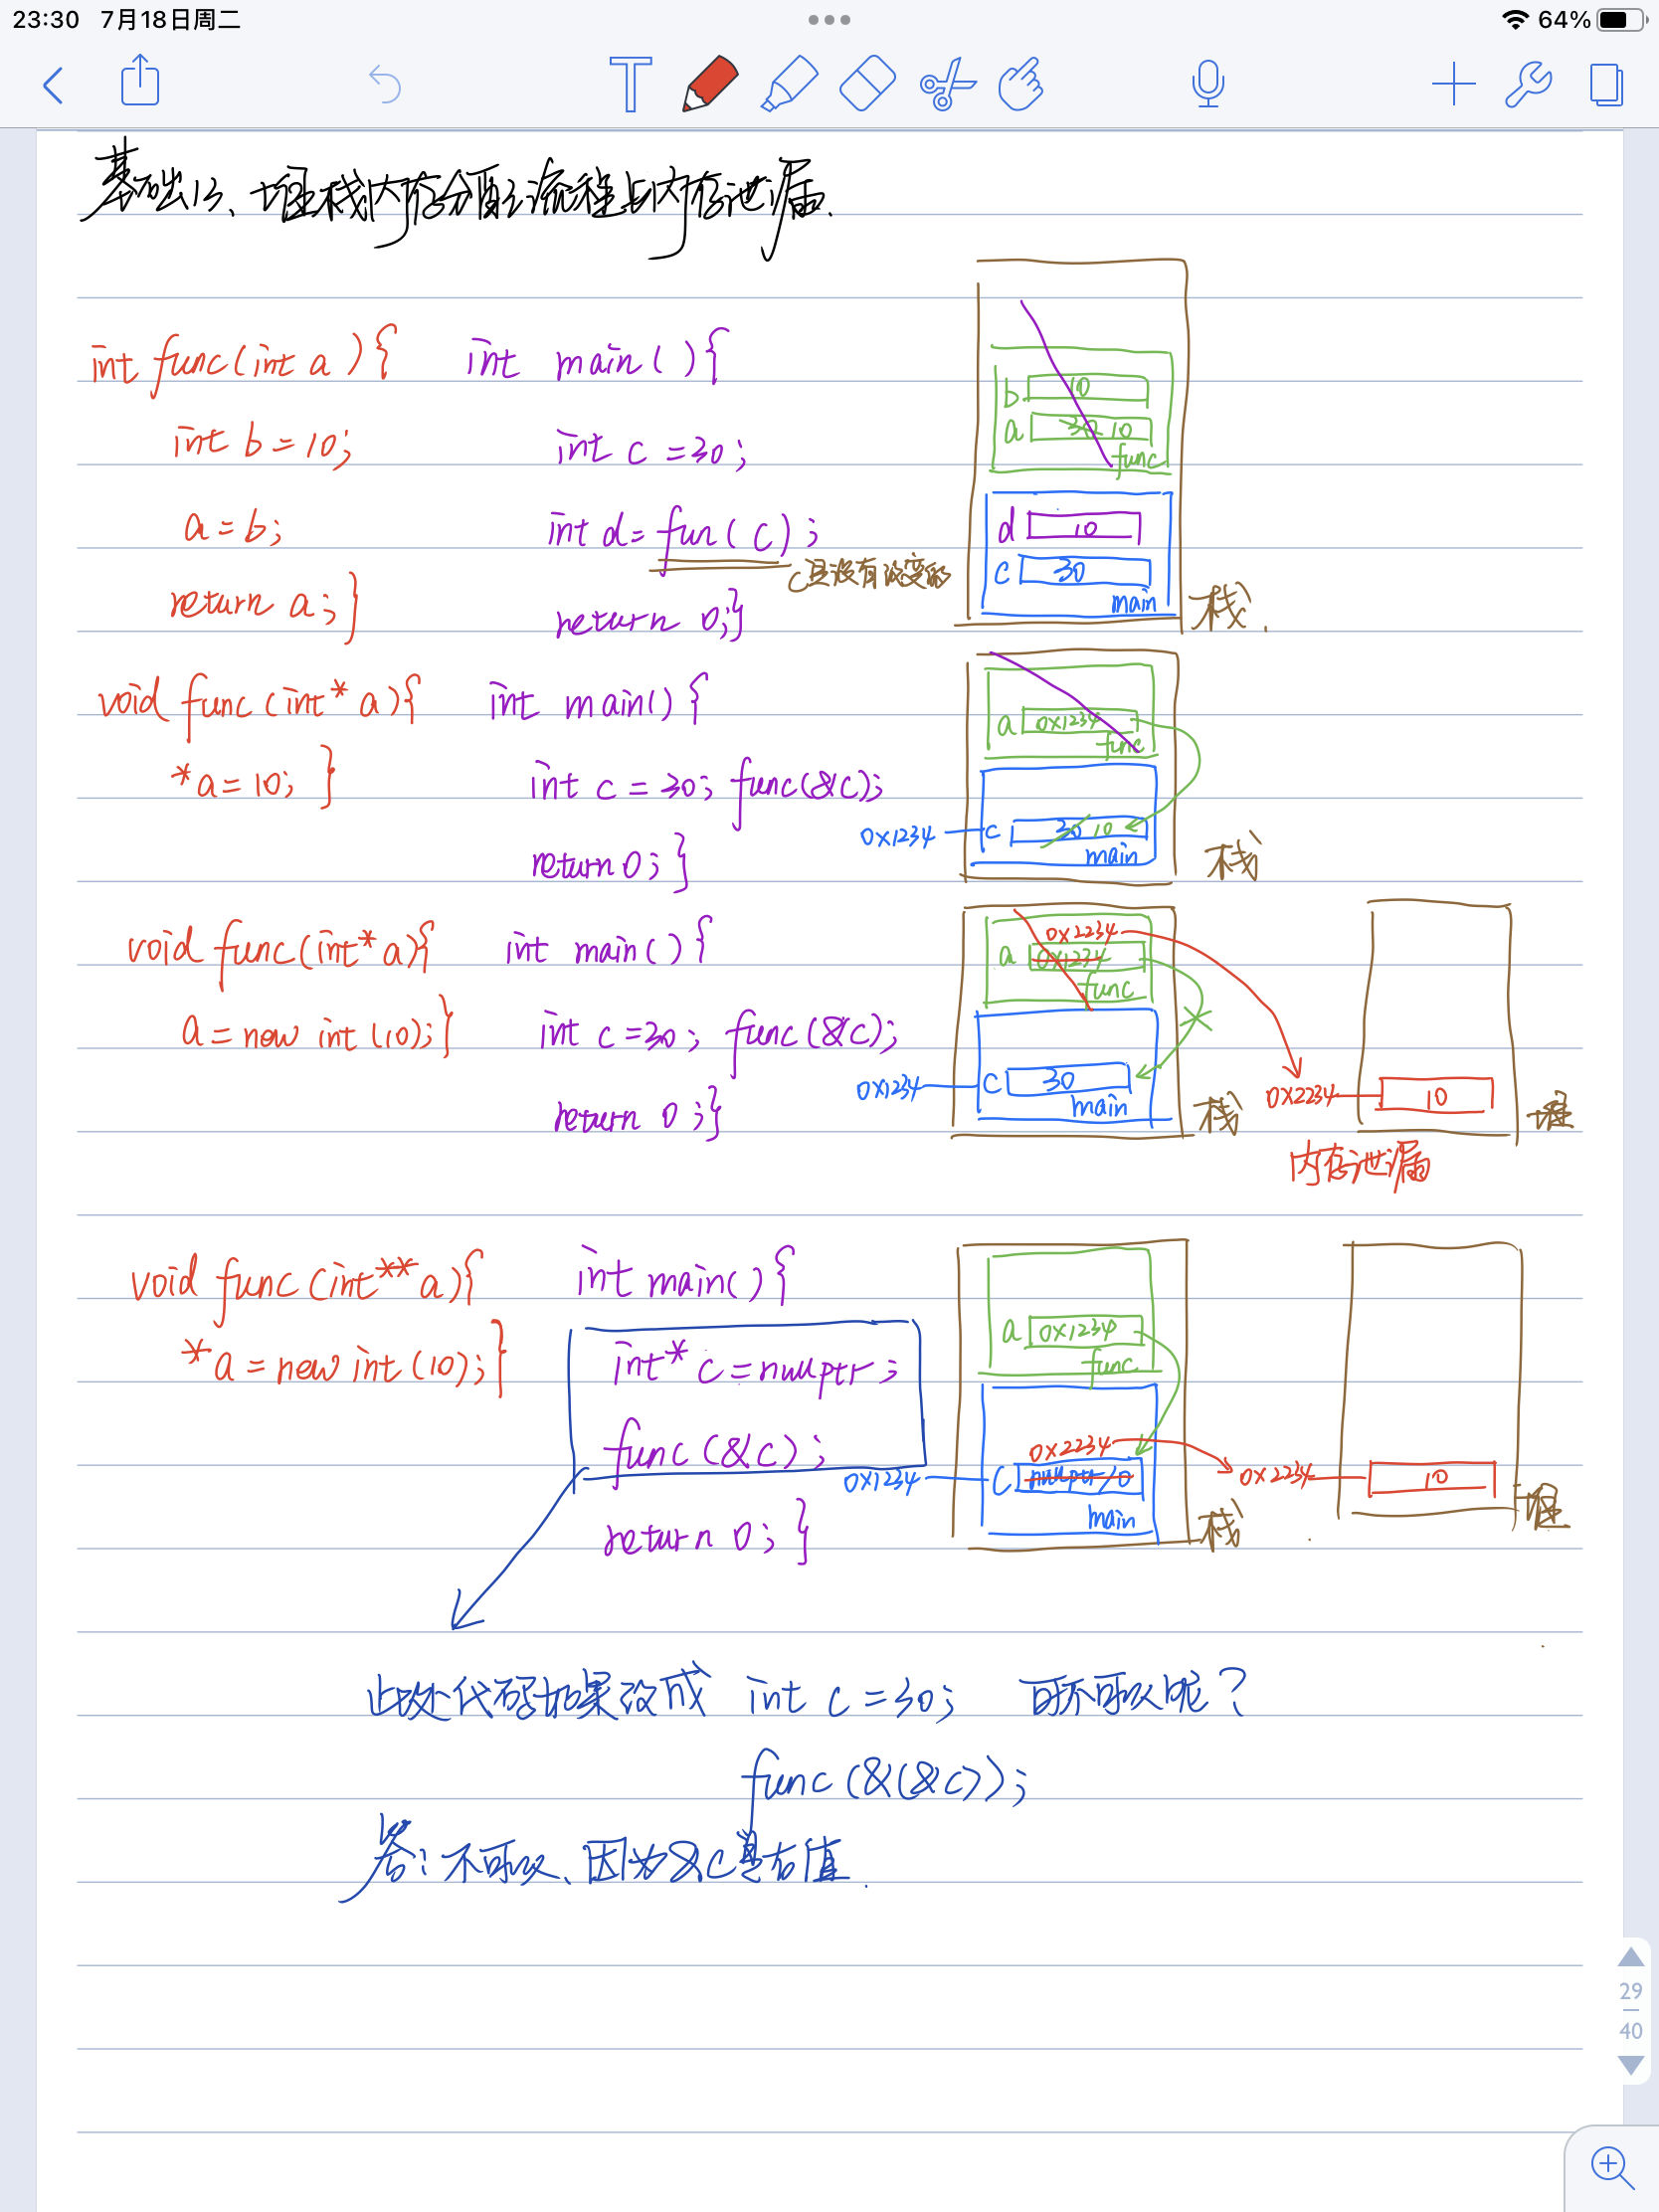 23:30 7月18日周二
64%
基础13、堆栈内存分配之流程与内存泄漏.
int func(int a){
int b = 10;
a = b;
return a;}
int main(){
int c = 30;
int d = fun(c);
c是没有改变的
return 0;}
b 10
a 30 10
func
d 10
c 30
main
栈.
void func(int* a){
*a = 10; }
int main(){
int c = 30; func(&c);
return 0; }
a 0x1234
func
0x1234 c 30 10
main
栈
void func(int* a){
a = new int(10);}
int main(){
int c = 30; func(&c);
return 0;}
0x2234
a 0x1234
func
0x1234 c 30
main
栈
0x2234 10
堆
内存泄漏
void func(int** a){
*a = new int(10);}
int main(){
int* c = nullptr;
func(&c);
return 0; }
a 0x1234
func
0x2234
0x1234 c nullptr/0
main
栈
0x2234 10
堆
此处代码如果改成 int c = 30; 可不可以呢?
func(&(&c));
答: 不可以、因为&c是右值.
29
40